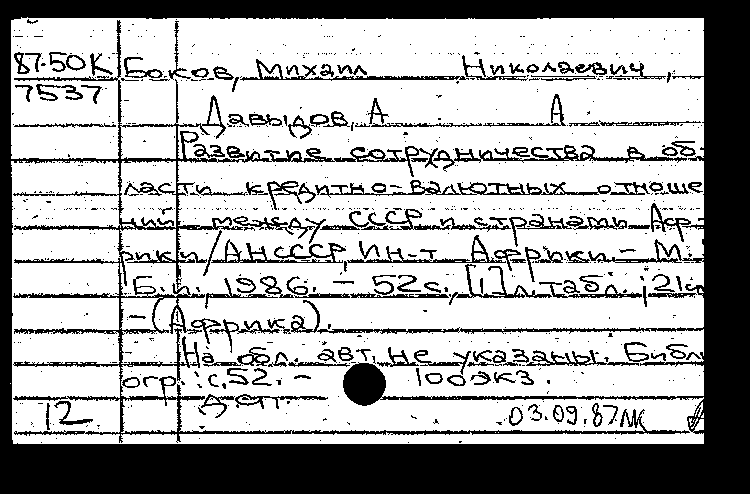 87-50К Боков, Михаил Николаевич,
7537
Давыдов, А А
Развитие сотрудничества в об-
ласти кредитно-валютных отноше
ний между СССР и странами Аф-
рики/АНСССР, Ин-т Африки. - М.:
Б.и., 1986. - 52с., [1] л. табл.; 21с
-(Африка).
На обл. авт. не указаны. Библи
огр.: с.52. - 100экз.
12 Деп.
03.09.87